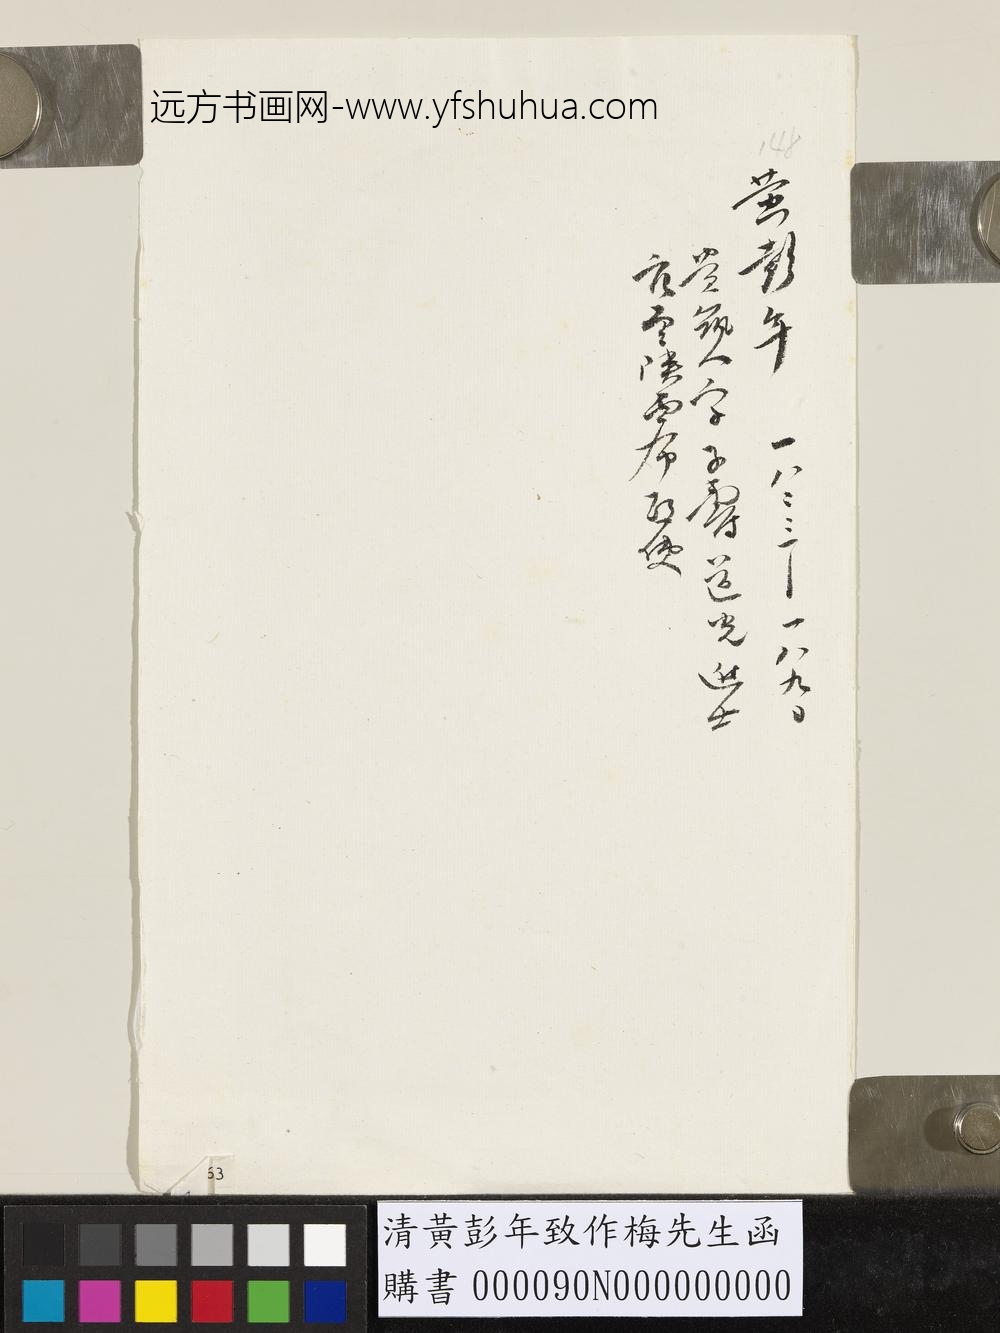 远方书画网-www.yfshuhua.com
148
黄彭年 一八二三—一八九〇
貴筑人字子壽道光進士
官至陕西布政使
63
清黃彭年致作梅先生函
購書 000090N000000000